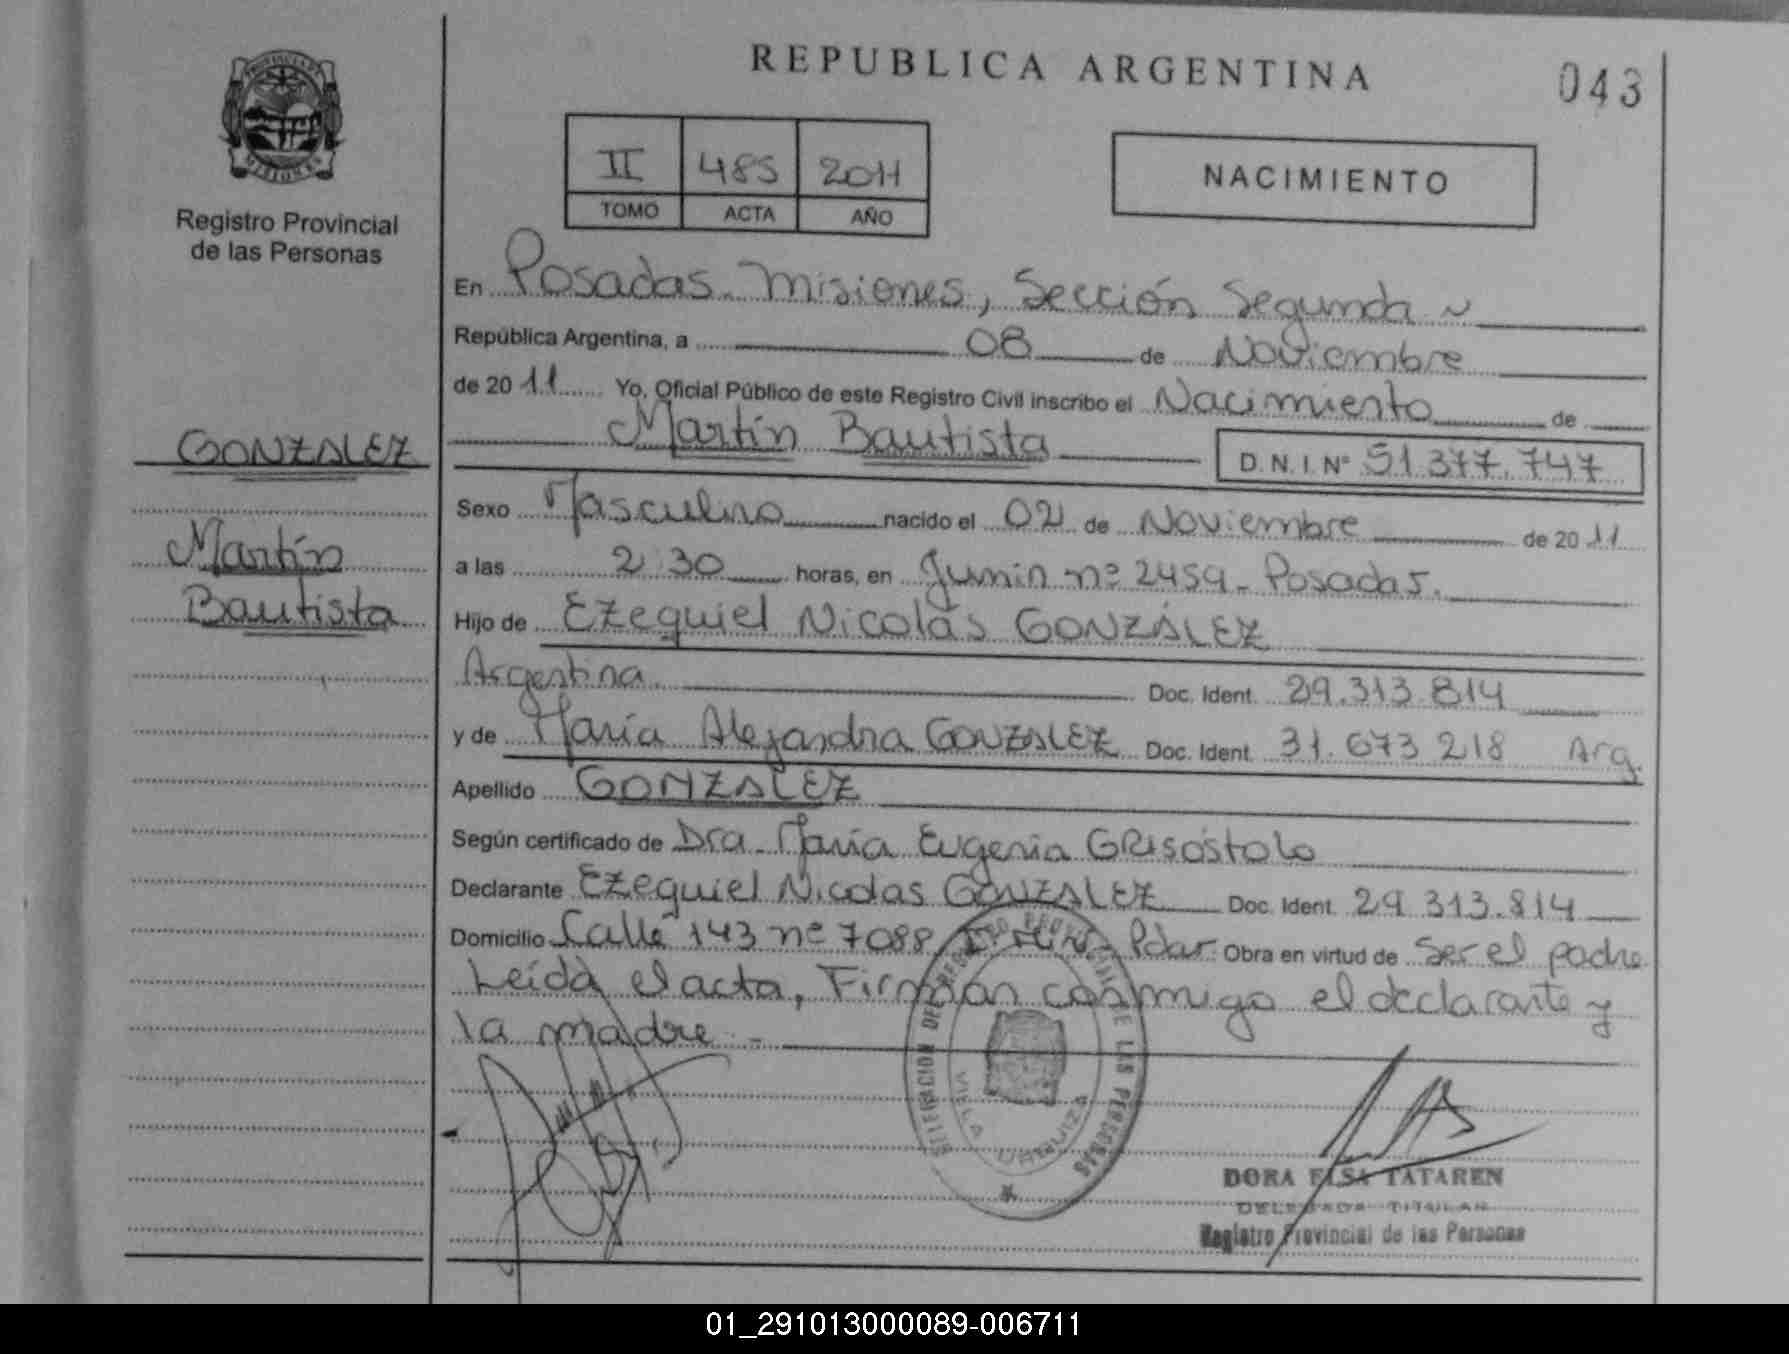 REPUBLICA ARGENTINA
043
PROVINCIA DE
MISIONES
Registro Provincial
de las Personas
II 485 2011
TOMO ACTA AÑO
NACIMIENTO
En Posadas - Misiones, Sección Segunda
República Argentina, a 08 de Noviembre
de 2011 Yo, Oficial Público de este Registro Civil inscribo el Nacimiento de
Martín Bautista D.N.I. Nº 51.377.747
GONZALEZ
Martín
Bautista
Sexo Masculino nacido el 02 de Noviembre de 2011
a las 2:30 horas, en Junin nº 2459 - Posadas.
Hijo de Ezequiel Nicolás GONZÁLEZ
Argentina Doc. Ident. 29.313.814
y de María Alejandra GONZALEZ Doc. Ident. 31.673.218 Arg.
Apellido GONZALEZ
Según certificado de Dra. María Eugenia GRISÓSTOLO
Declarante Ezequiel Nicolas GONZALEZ Doc. Ident. 29.313.814
Domicilio Calle 143 nº 7088 Pdas. Obra en virtud de Ser el padre
Leída el acta, Firman conmigo el declarante y
la madre.-
DE LAS PERSONAS
VILLA URQUIZA
DORA ELSA TATAREN
DELEGADA TITULAR
Registro Provincial de las Personas
01_291013000089-006711